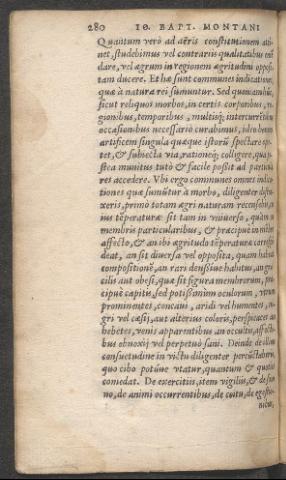 280 IO. BAPT. MONTANI
Quantum verò ad aëris constitutionem atti-
net, studebimus vel contrariis qualitatibus emẽ
dare, vel ægrum in regionem ægritudini opposi-
tam ducere. Et hæ sunt communes indicationes,
quæ à natura rei sumuntur. Sed quem
sicut reliquos morbos, in certis corporibus, re-
gionibus, temporibus, multisq; intercurrentibus
occasionibus necessariò curabimus, ideo bonum
artificem singula quæque istorũ spectare opor-
tet, & subiecta via, rationeq; colligere, qua po-
stea munitus tutò & facilè possit ad particula-
res accedere. Vbi ergo communes omnes indica-
tiones quæ sumũtur à morbo, diligenter discus-
xeris, primò totam ægri naturam recensebis,
ius tẽperaturæ sit tam in vniuerso, quàm in
membris particularibus, & præcipuè in mẽbro
affecto, & an ibi ægritudo tẽperaturæ correspõ
deat, an sit diuersa vel opposita, quam habeat
compositionẽ, an rari densiúue habitus, an gra-
cilis aut obesi, quæ sit figura membrorum, præ
cipuè capitis, sed potissimùm oculorum, vtrum
prominentes, concaui, aridi vel humentes, ni-
gri vel cæsij, aut alterius coloris, perspicaces an
hebetes, venis apparentibus an occultis, affecti-
bus obnoxij vel perpetuò sani. Deinde de illius
consuetudine in victu diligenter percũctabere,
quo cibo potúue vtatur, quantum & qualiter
comedat. De exercitiis, item vigiliis, & de som
no, de animi occurrentibus, de coitu, de egestio-
nibus,